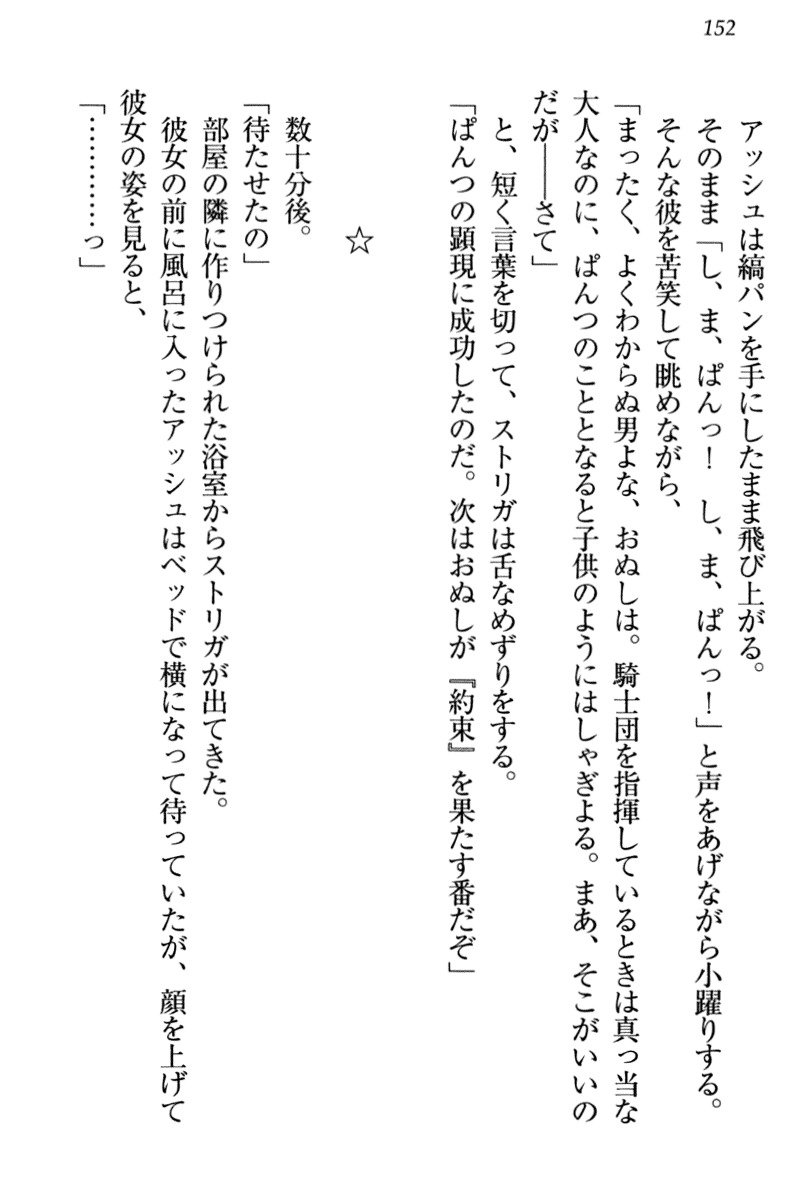 152
アッシュは縞パンを手にしたまま飛び上がる。
そのまま「し、ま、ぱんっ！　し、ま、ぱんっ！」と声をあげながら小躍りする。
そんな彼を苦笑して眺めながら、
「まったく、よくわからぬ男よな、おぬしは。騎士団を指揮しているときは真っ当な
大人なのに、ぱんつのこととなると子供のようにはしゃぎよる。まあ、そこがいいの
だが――さて」
と、短く言葉を切って、ストリガは舌なめずりをする。
「ぱんつの顕現に成功したのだ。次はおぬしが『約束』を果たす番だぞ」
☆
数十分後。
「待たせたの」
部屋の隣に作りつけられた浴室からストリガが出てきた。
彼女の前に風呂に入ったアッシュはベッドで横になって待っていたが、顔を上げて
彼女の姿を見ると、
「…………っ」